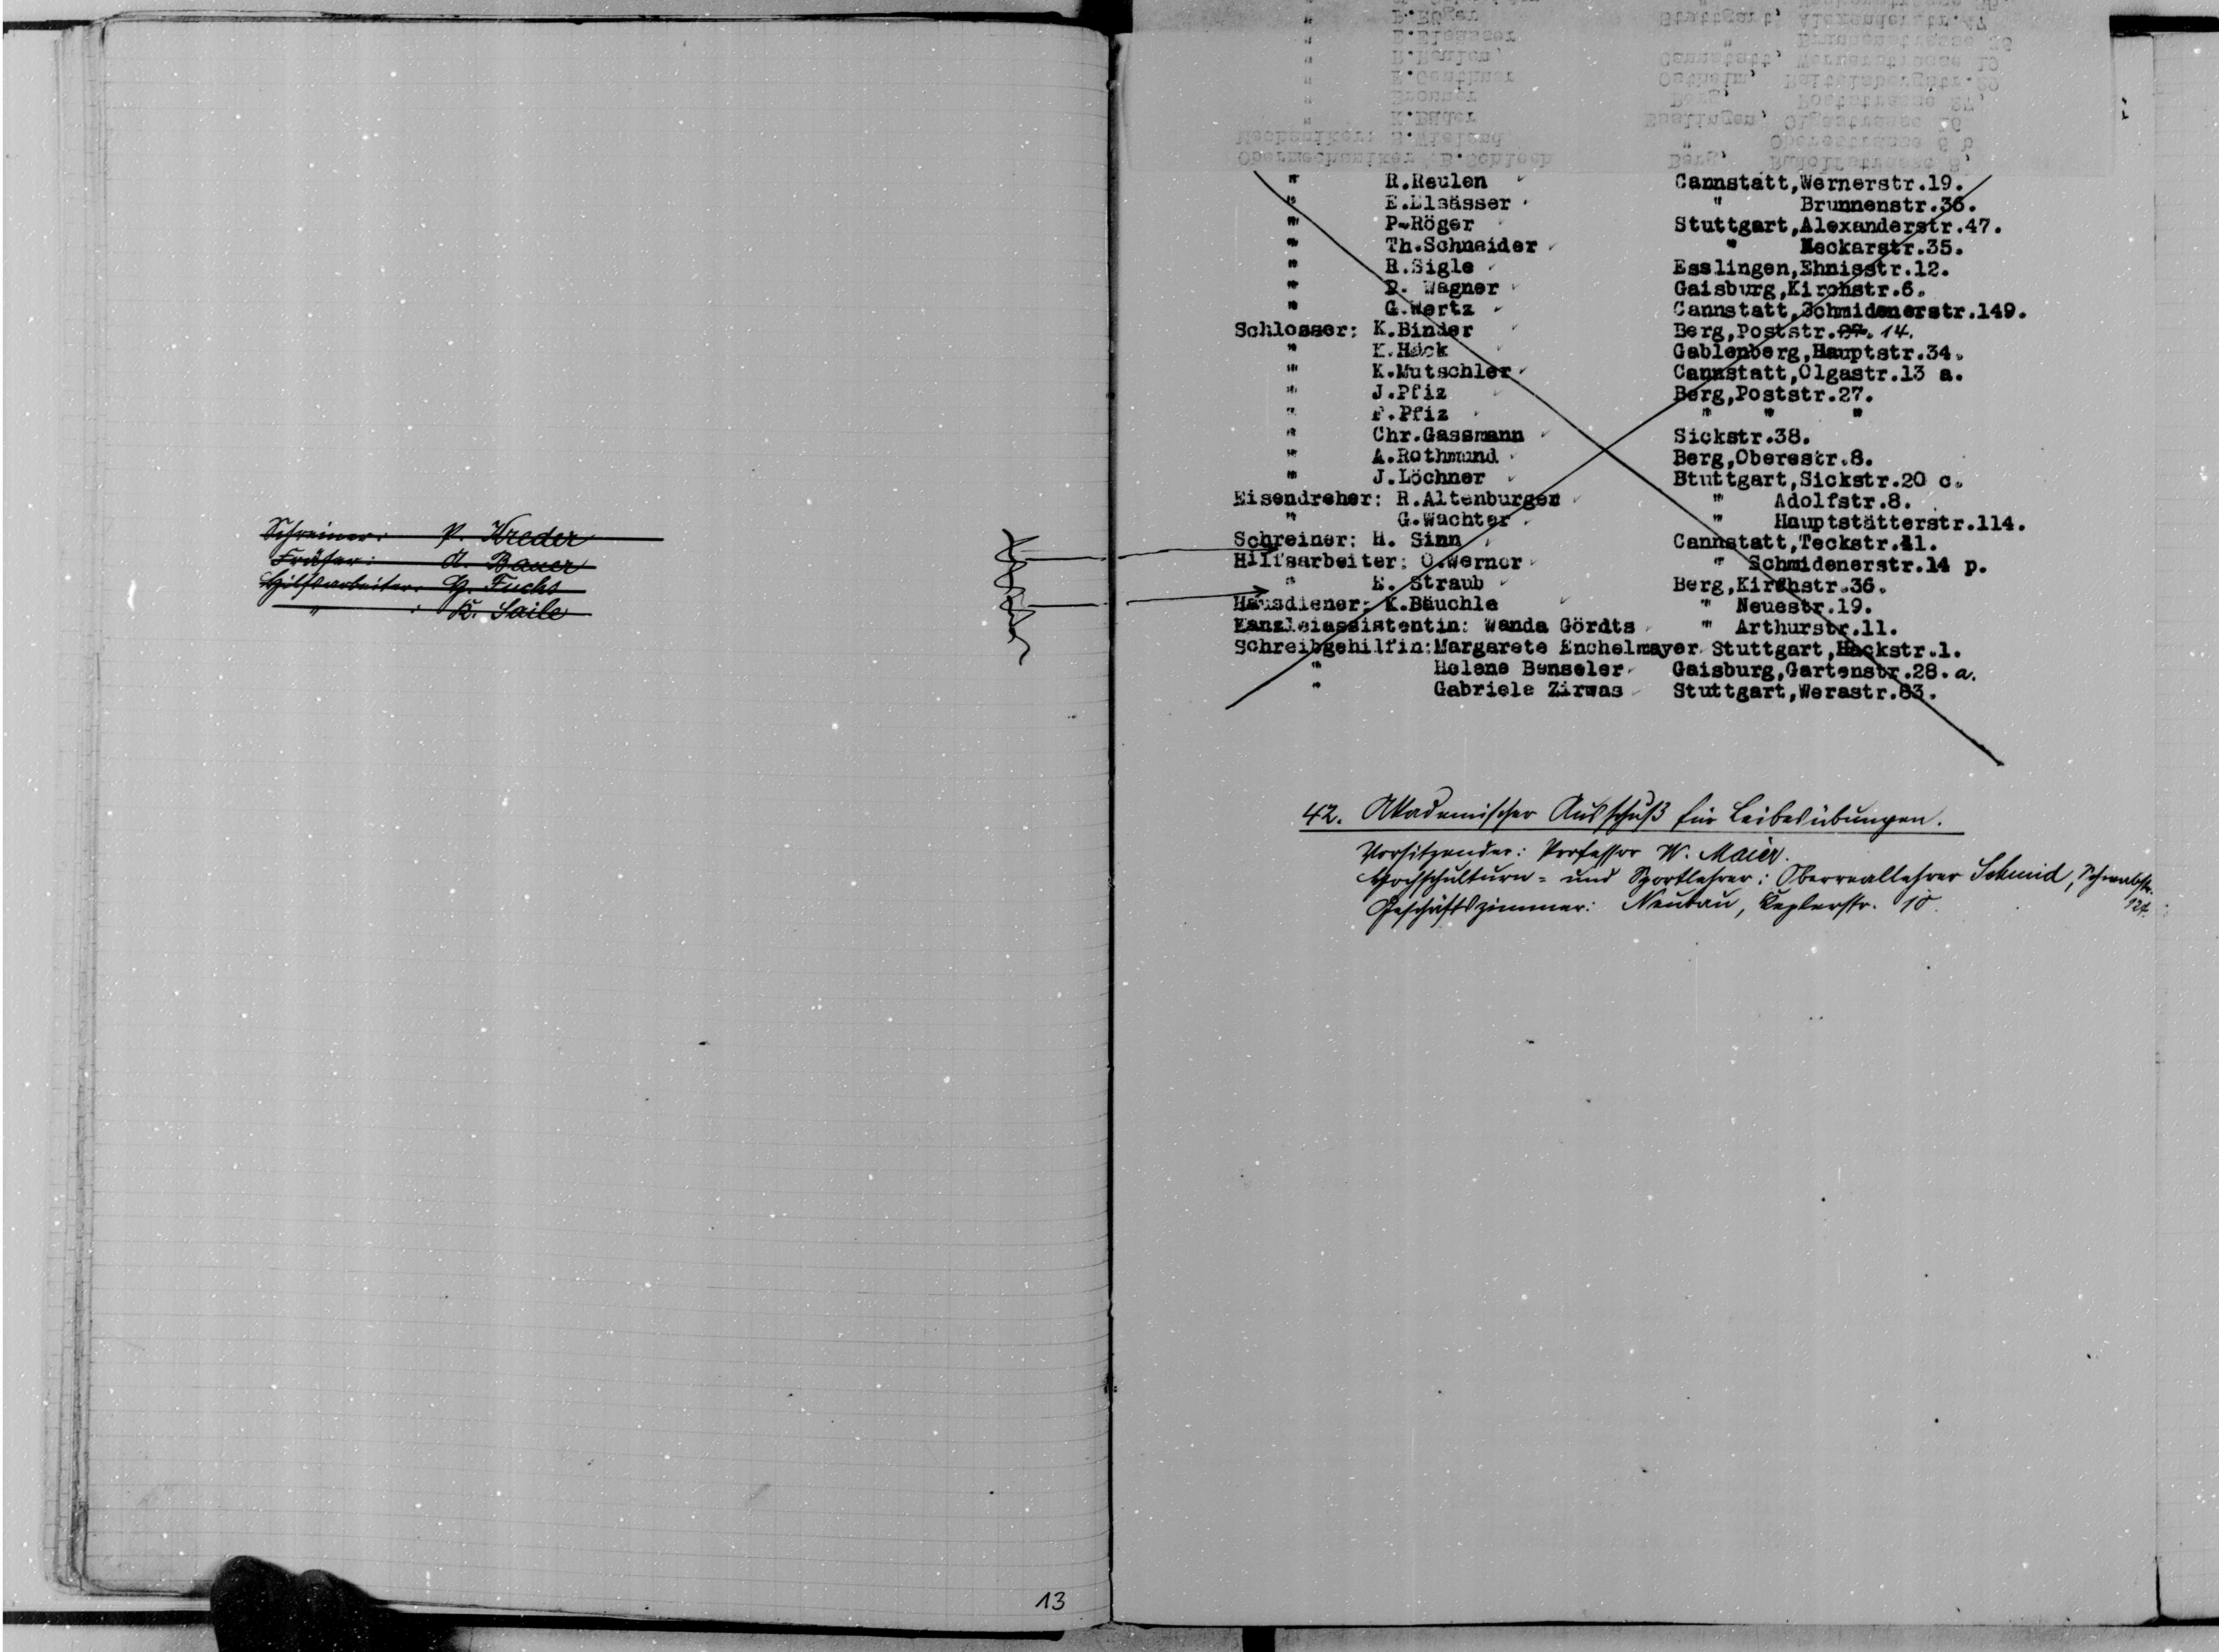 Schreiner: P. Kreder
Fräser: A. Bauer
Hilfsarbeiter: G. Fuchs
" : K. Saile
13
" R.Reulen Cannstatt,Wernerstr.19.
" E.Elsässer " Brunnenstr.36.
" P.Röger Stuttgart,Alexanderstr.47.
" Th.Schneider " Neckarstr.35.
" R.Sigle Esslingen,Ehnisstr.12.
" Wagner Gaisburg,Kirchstr.6.
" G.Wertz Cannstatt,Schmidenerstr.149.
Schlosser: K.Binder Berg,Poststr.27. 14.
" K.Häck Gablenberg,Hauptstr.34.
" K.Mutschler Cannstatt,Olgastr.13 a.
" J.Pfiz Berg,Poststr.27.
" F.Pfiz " " "
" Chr.Gassmann Sickstr.38.
" A.Rothmund Berg,Oberestr.8.
" J.Löchner Btuttgart,Sickstr.20 c.
Eisendreher: R.Altenburger " Adolfstr.8.
" G.Wachter " Hauptstätterstr.114.
Schreiner: H. Sinn Cannstatt,Teckstr.41.
Hilfsarbeiter: O.Werner " Schmidenerstr.14 p.
" E. Straub Berg,Kirchstr.36.
Hausdiener: K.Bäuchle " Neuestr.19.
Kanzleiassistentin: Wanda Gördts " Arthurstr.11.
Schreibgehilfin:Margarete Enchelmayer Stuttgart,Hackstr.1.
" Helene Benseler Gaisburg,Gartenstr.28. a.
" Gabriele Zirwas Stuttgart,Werastr.83.
42. Akademischer Ausschuß für Leibesübungen.
Vorsitzender: Professor W. Maier.
Hochschulturn- und Sportlehrer: Oberreallehrer Schmid, Schwabstr.
124.
Geschäftszimmer: Neubau, Keplerstr. 10.